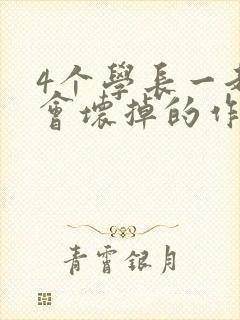 4个學長一
會壞掉的作
青霄銀月